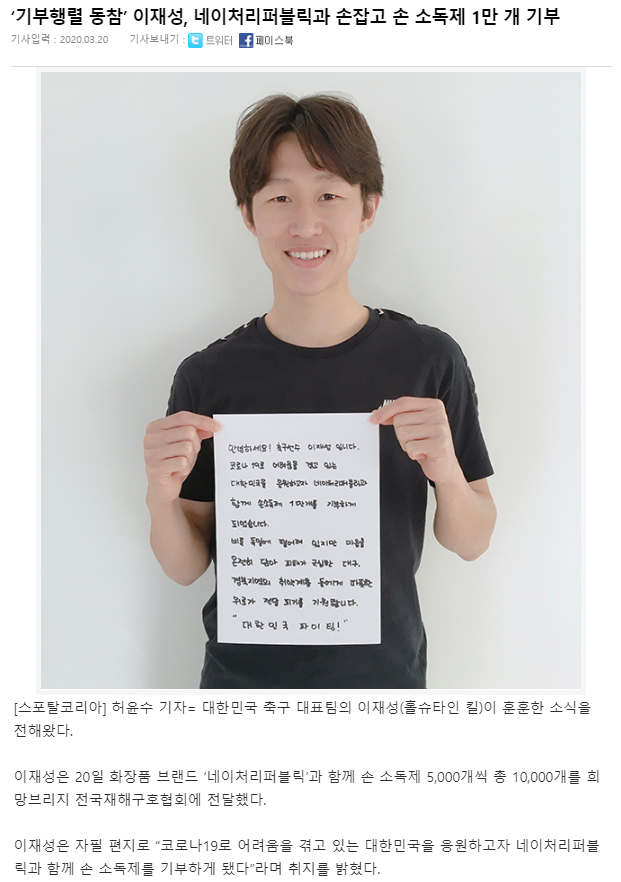 ‘기부행렬 동참’ 이재성, 네이처리퍼블릭과 손잡고 손 소독제 1만 개 기부
기사입력 : 2020.03.20 기사보내기 : 트위터 페이스북
안녕하세요! 축구선수 이재성 입니다.
코로나 19로 어려움을 겪고 있는
대한민국을 응원하고자 네이처리퍼블릭과
함께 손소독제 1만개를 기부하게
되었습니다.
비록 독일에 떨어져 있지만 마음을
온전히 담아 피해가 극심한 대구,
경북지역의 취약계층 들에게 따뜻한
위로가 전달 되기를 기원합니다.
"대한민국 파이팅!"
[스포탈코리아] 허윤수 기자= 대한민국 축구 대표팀의 이재성(홀슈타인 킬)이 훈훈한 소식을
전해왔다.
이재성은 20일 화장품 브랜드 ‘네이처리퍼블릭’과 함께 손 소독제 5,000개씩 총 10,000개를 희
망브리지 전국재해구호협회에 전달했다.
이재성은 자필 편지로 “코로나19로 어려움을 겪고 있는 대한민국을 응원하고자 네이처리퍼블
릭과 함께 손 소독제를 기부하게 됐다”라며 취지를 밝혔다.